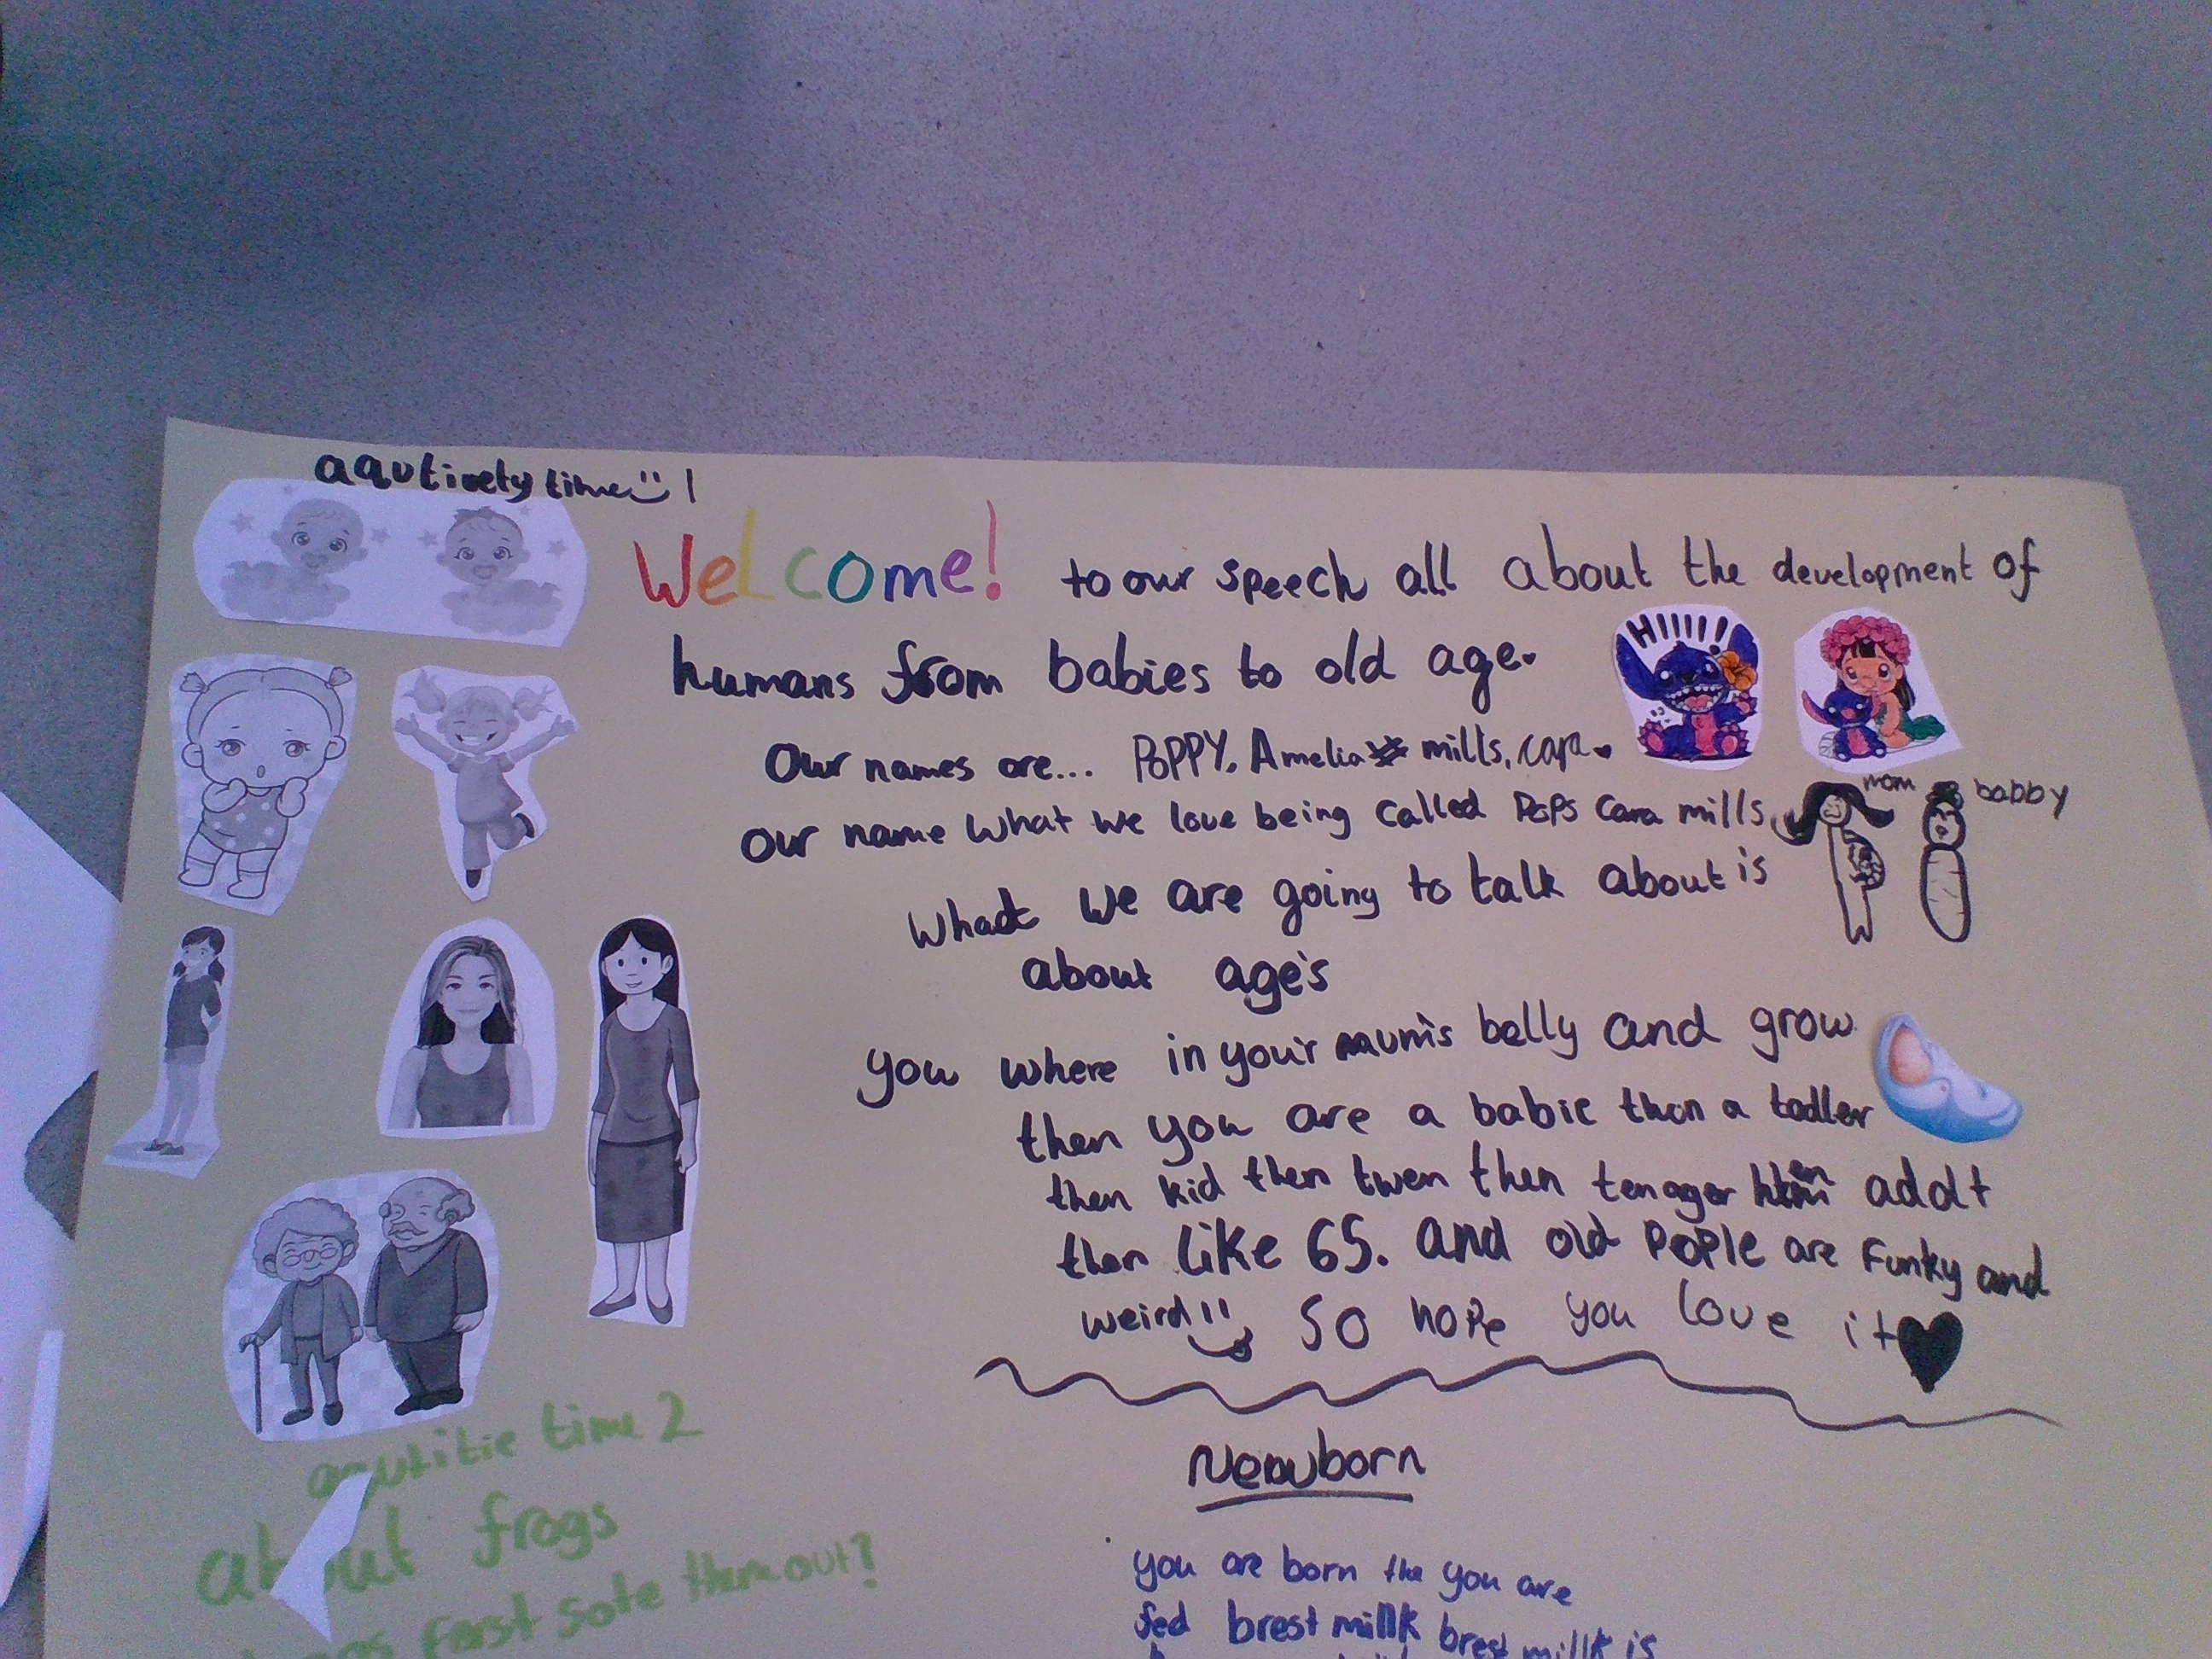 aqutively time 1
Welcome! to our speech all about the development of
humans from babies to old age.
HIIII!
Our names are... POPPY, Amelia mills, cara
our name what we love being called Pops Cara mills
mom
babby
what we are going to talk about is
about age's
you where in your mum's belly and grow
then you are a babie then a todler
then kid then twen then tenager then addt
then like 65. and old people are funky and
weird!! So hope you love it
aqutitie time 2
about frogs
ferst sote them out?
Newborn
you are born the you are
fed brest millk brest millk is